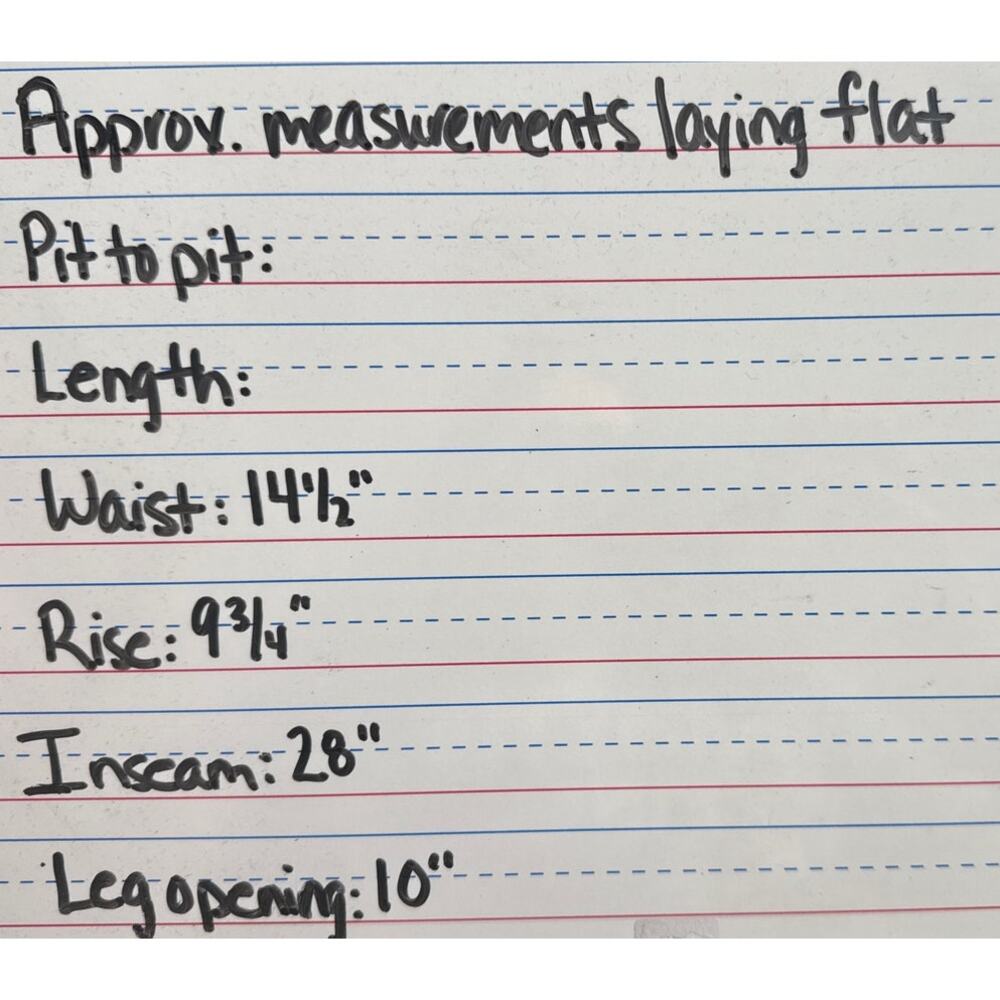 Approx. measurements laying flat
Pit to pit:
Length:
Waist: 14 1/2"
Rise: 9 3/4"
Inseam: 28"
Leg opening: 10"